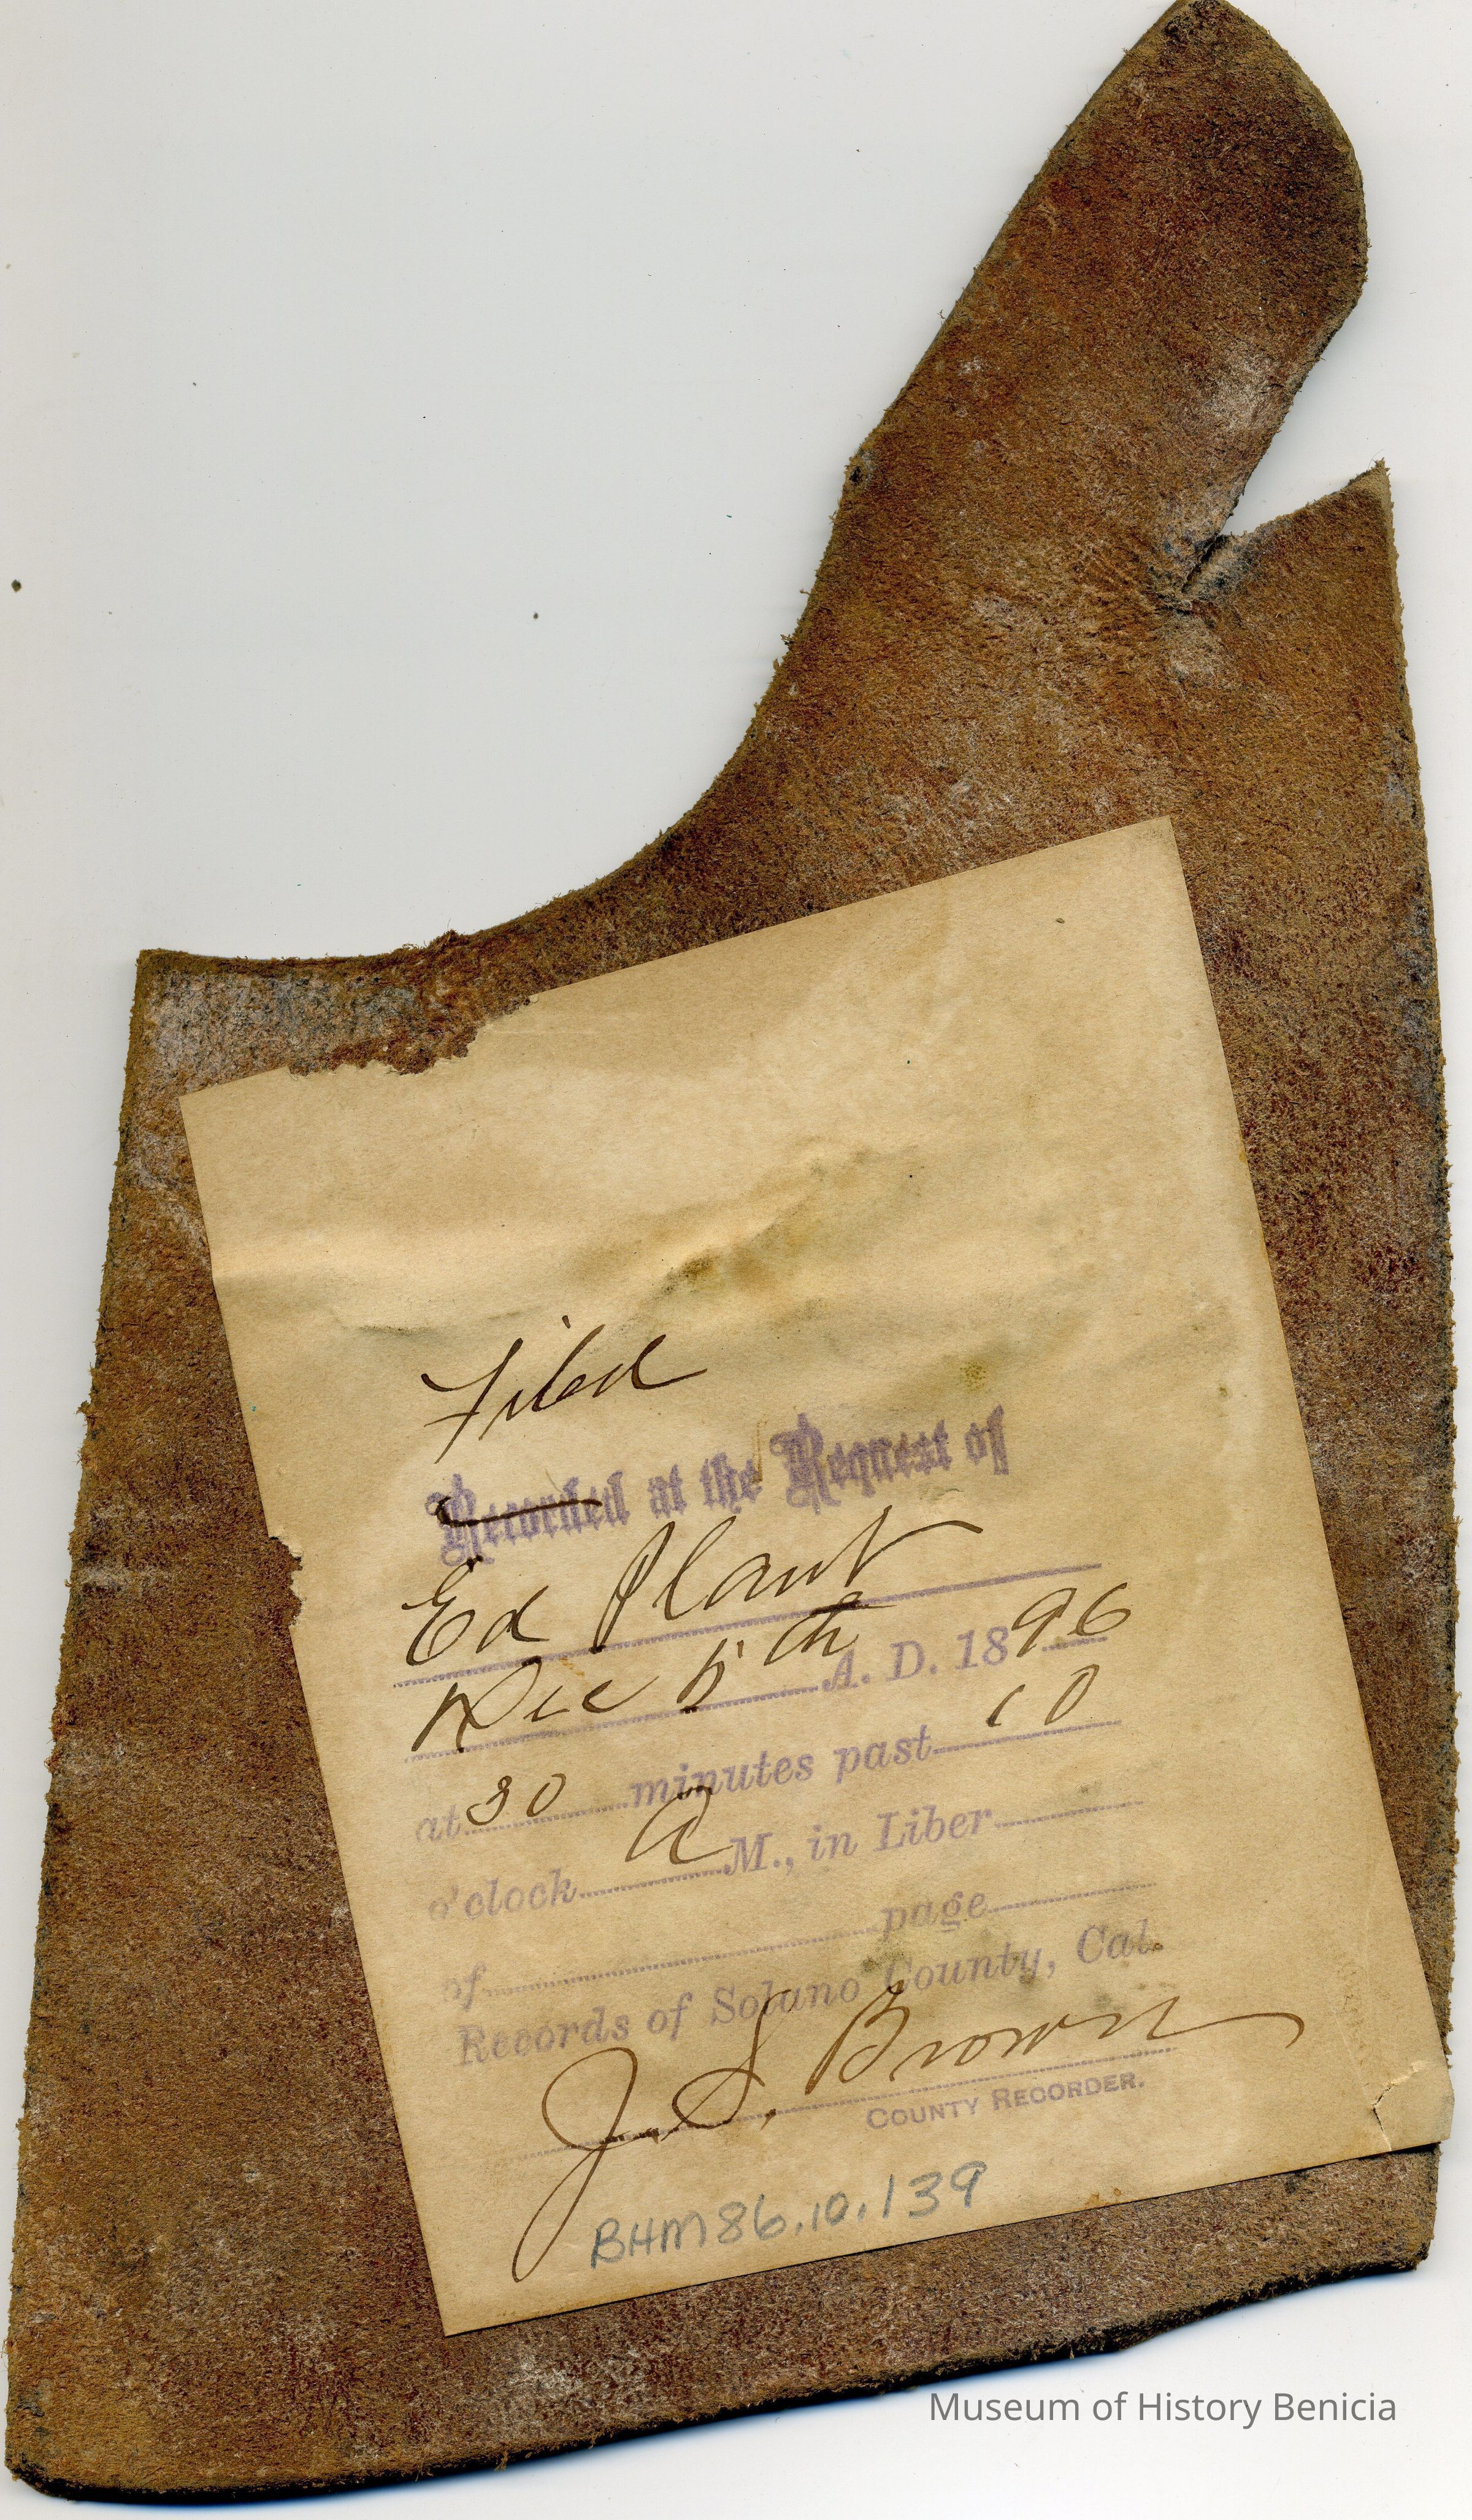 Filed
Recorded at the Request of
Ed Plant
Dec 5th A. D. 1896
at 30 minutes past 10
o'clock A M., in Liber
of page
Records of Solano County, Cal.
J. S. Brown
COUNTY RECORDER.
BHM86.10.139
Museum of History Benicia